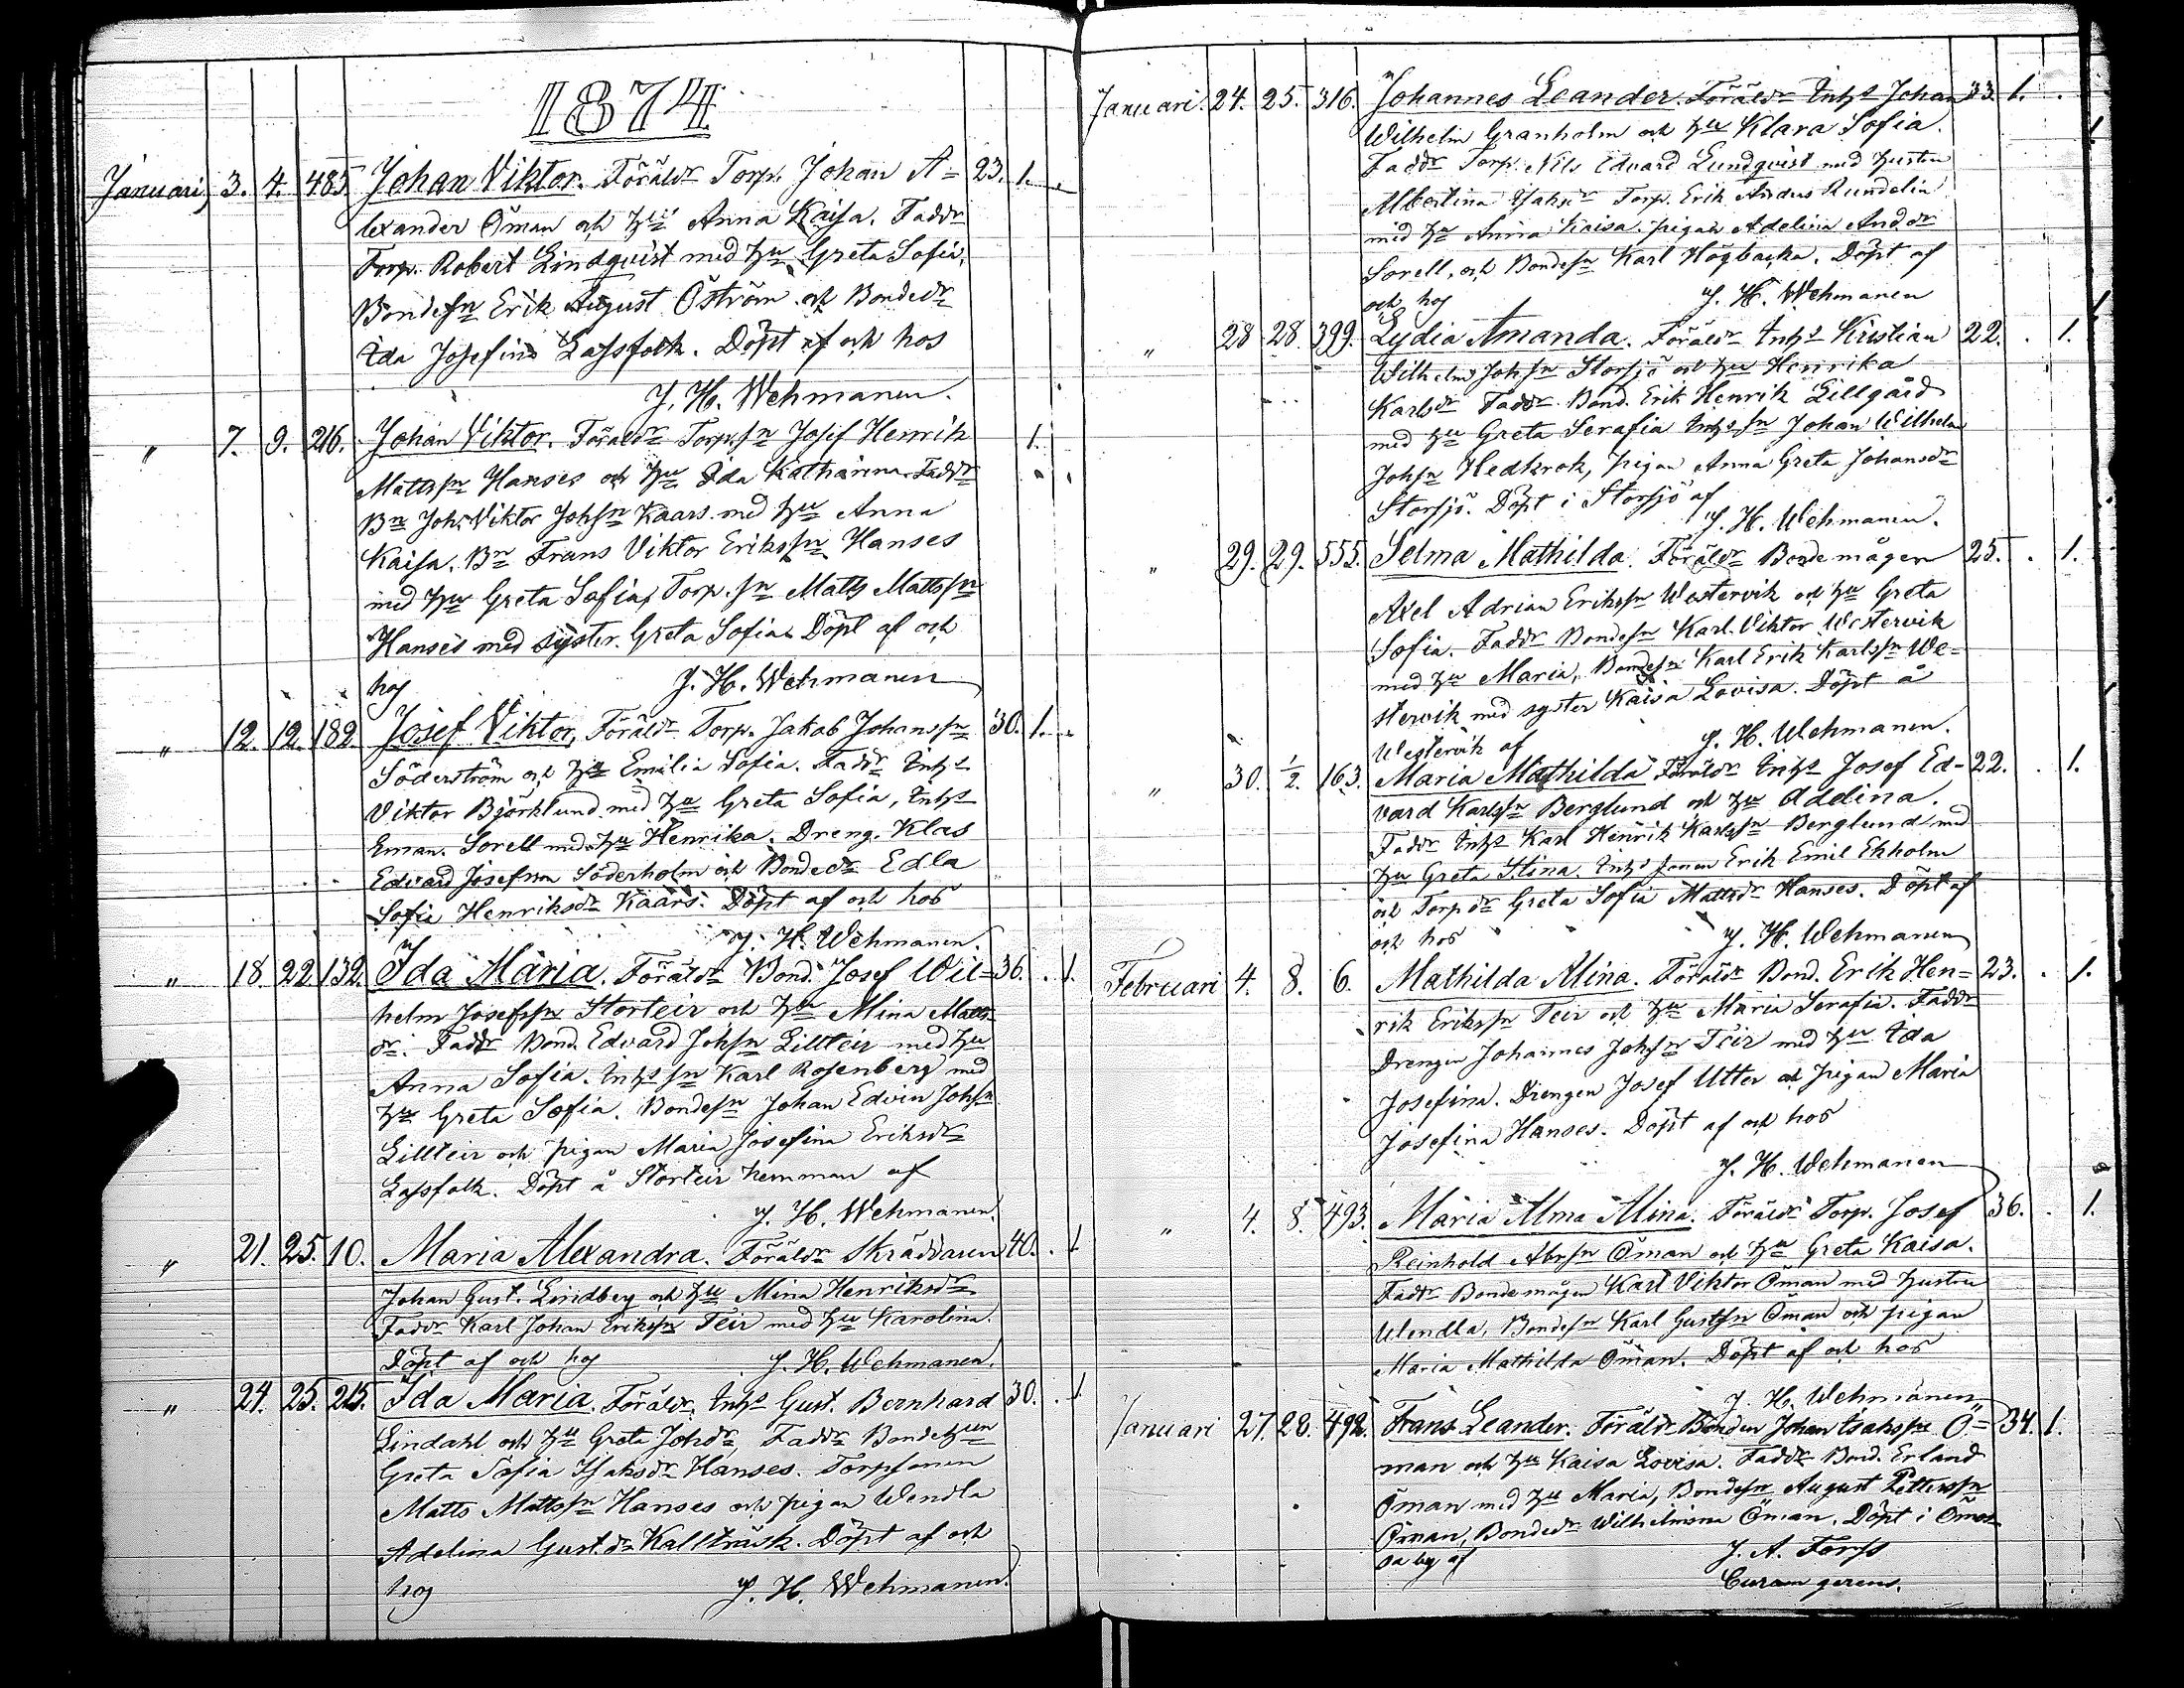 1874
Januari, 3. 4. 485 Johan Viktor. Föräldr Torp. Johan A= 23. 1.
lexander Öman och hu Anna Kaisa. Faddr
Torp. Robert Lindqvist med hu Greta Sofia,
Bondesn Erik August Öström och Bondedr
Ida Josefina Lassfolk. Döpt af och hos
J. H. Wehmanen.
" 7. 9. 216. Johan Viktor. Föräldr Torp.sn Josef Henrik 1.
Mattssn Hanses och hu Ida Katharina. Faddr
Bn Joh. Viktor Johsn Kaars med hu Anna
Kaisa. Bn Frans Viktor Erikssn Hanses
med hu Greta Sofia, Torp.sn Matts Mattssn
Hanses med syster Greta Sofia. Döpt af och
hos J. H. Wehmanen
" 12. 12. 182. Josef Viktor, Föräldr Torp. Jakob Johanssn 30. 1.
Söderström och hu Emilia Sofia. Faddr Inhs
Viktor Björklund med hu Greta Sofia, Inhs
Eman. Sorell med hu Henrika. Dreng. Klas
Edvard Josefsson Söderholm och Bondedr Edla
Sofia Henriksdr Kaars. Döpt af och hos
J. H. Wehmanen.
" 18. 22. 132. Ida Maria. Föräldr Bond. Josef Wil= 36. . 1.
helm Josefssn Storteir och hu Mina Matts=
dr. Faddr Bond. Edvard Johsn Lillteir med hu
Anna Sofia. Inhs sn Karl Rosenberg med
hu Greta Sofia. Bondesn Johan Edvin Johsn
Lillteir och pigan Maria Josefina Eriksdr
Lassfolk. Döpt å Storteir hemman af
J. H. Wehmanen.
" 21. 25. 10. Maria Alexandra. Föräldr Skräddaren 40. . 1
Johan Gust. Lindberg och hu Mina Henriksdr
Faddr Karl Johan Erikssn Teir med hu Karolina.
Döpt af och hos J. H. Wehmanen.
" 24. 25. 215. Ida Maria. Föräldr. Inhs Gust. Bernhard 30. . 1
Lindahl och hu Greta Johdr, Faddr Bondehun
Greta Sofia Isaksdr Hanses. Torpsonen
Matts Mattssn Hanses och pigan Wendla
Adelina Gust.dr Kallträsk. Döpt af och
hos J. H. Wehmanen.
Januari. 24. 25. 316. Johannes Leander. Föräldr Inhs Johan 33. 1. .
Wilhelm Granholm och hu Klara Sofia.
Faddr Torp. Nils Edvard Lundqvist med hustru
Albertina Isaksdr Torp. Erik Anders Rundelin
med hu Anna Kaisa. pigan Adelina Anddr
Sorell, och Bondesn Karl Högbacka. Döpt af
och hos J. H. Wehmanen
" 28 28. 399. Lydia Amanda. Föräldr Inhs Kristian 22. . 1.
Wilhelm Johsn Storsjö och hu Henrika
Karlsdr Faddr Bond. Erik Henrik Lillgård
med hu Greta Serafia Inhs sn Johan Wilhelm
Johsn Hedkrok, pigan Anna Greta Johansdr
Storsjö. Döpt i Storsjö af
J. H. Wehmanen.
" 29. 29. 555. Selma Mathilda. Föräldr Bondemågen 25. . 1.
Axel Adrian Erikssn Westervik och hu Greta
Sofia. Faddr Bondesn Karl Viktor Westervik
med hu Maria, Bondesn Karl Erik Karlssn We=
stervik med syster Kaisa Lovisa. Döpt å
Westervik af J. H. Wehmanen.
" 30. 1/2. 163. Maria Mathilda Föräldr Inhs Josef Ed= 22. . 1.
vard Karlssn Berglund och hu Adelina.
Faddr Inhs Karl Henrik Karlssn Berglund med
hu Greta Stina. Inhs sonen Erik Emil Ekholm
och Torpdr Greta Sofia Mattsdr Hanses. Döpt af
och hos J. H. Wehmanen
Februari 4. 8. 6. Mathilda Mina. Föräldr Bond. Erik Hen= 23. . 1.
rik Erikssn Teir och hu Maria Serafia. Faddr
Drengen Johannes Johsn Teir med hu Ida
Josefina. Drengen Josef Utter och pigan Maria
Josefina Hanses. Döpt af och hos
J. H. Wehmanen
" 4. 8. 493. Maria Alma Mina. Föräldr Torp. Josef 36. . 1.
Reinhold Abrsn Öman och hu Greta Kaisa.
Faddr Bondemågen Karl Viktor Öman med hustru
Wendla, Bondesn Karl Gustsn Öman och pigan
Maria Mathilda Öman. Döpt af och hos
J. H. Wehmanen
Januari 27. 28. 492. Frans Leander. Föräldr Bonden Johan Isakssn Ö= 34. 1.
man och hu Kaisa Lovisa. Faddr Bond. Erland
Öman med hu Maria, Bondesn August Petterssn
Öman, Bondedr Wilhelmina Öman. Döpt i Ömos=
sa by af J. A. Forss
Curam gerens.